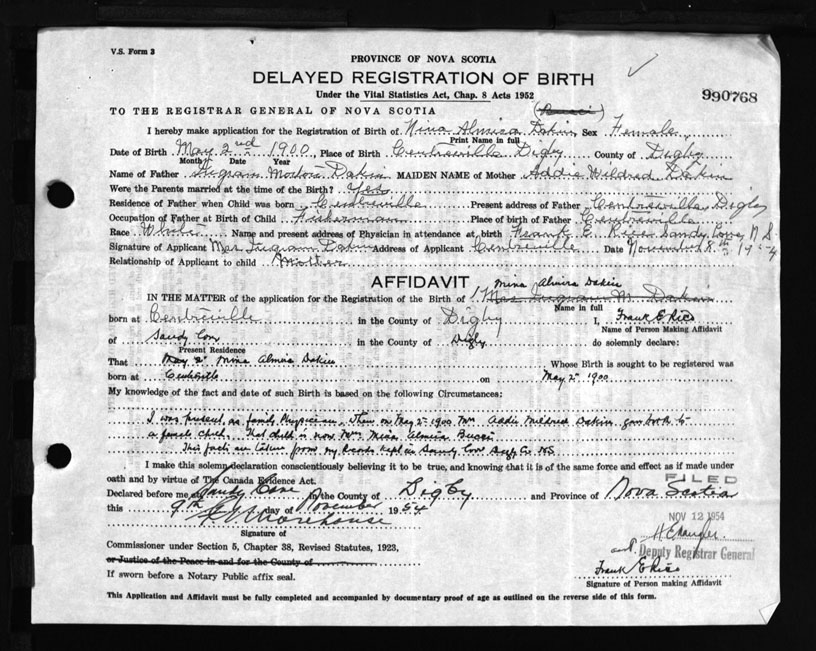 V.S. Form 3
PROVINCE OF NOVA SCOTIA
DELAYED REGISTRATION OF BIRTH
Under the Vital Statistics Act, Chap. 8 Acts 1952
990768
TO THE REGISTRAR GENERAL OF NOVA SCOTIA
I hereby make application for the Registration of Birth of Mina Almira Dakin Sex Female
Print Name in full
Date of Birth May 2nd 1900, Place of Birth Centreville Digby County of Digby
Month Date Year
Name of Father Ingram Dakin MAIDEN NAME of Mother Addie Mildred Dakin
Were the Parents married at the time of the Birth? Yes
Residence of Father when Child was born Centreville Present address of Father Centreville Digby
Occupation of Father at Birth of Child Fisherman Place of birth of Father Centreville
Race White Name and present address of Physician in attendance at birth Frank E. Rice Sandy Cove N S.
Signature of Applicant Mrs Ingram Dakin Address of Applicant Centreville Date November 8th 1954
Relationship of Applicant to child Mother
AFFIDAVIT
Mina Almira Dakin
IN THE MATTER of the application for the Registration of the Birth of Mrs Ingram M. Dakin
Name in full
born at Centreville in the County of Digby I, Frank E Rice
Name of Person Making Affidavit
of Sandy Cove in the County of Digby do solemnly declare:
Present Residence
That May 2 Mina Almira Dakin Whose Birth is sought to be registered was
born at Centreville on May 2 1900
My knowledge of the fact and date of such Birth is based on the following Circumstances:
I was present as family Physician. When on May 2 1900 Mrs Addie Mildred Dakin gave birth to
a female child. That child is now Mrs Mina Almira
This fact are taken from my Records kept in Sandy Cove Digby Co NS.
I make this solemn declaration conscientiously believing it to be true, and knowing that it is of the same force and effect as if made under
oath and by virtue of The Canada Evidence Act.
FILED
Declared before me at Sandy Cove in the County of Digby and Province of Nova Scotia
this 9th day of November 1954
NOV 12 1954
Morehouse
Signature of
Commissioner under Section 5, Chapter 38, Revised Statutes, 1923,
Deputy Registrar General
or Justice of the Peace in and for the County of
Frank E Rice
If sworn before a Notary Public affix seal.
Signature of Person making Affidavit
This Application and Affidavit must be fully completed and accompanied by documentary proof of age as outlined on the reverse side of this form.